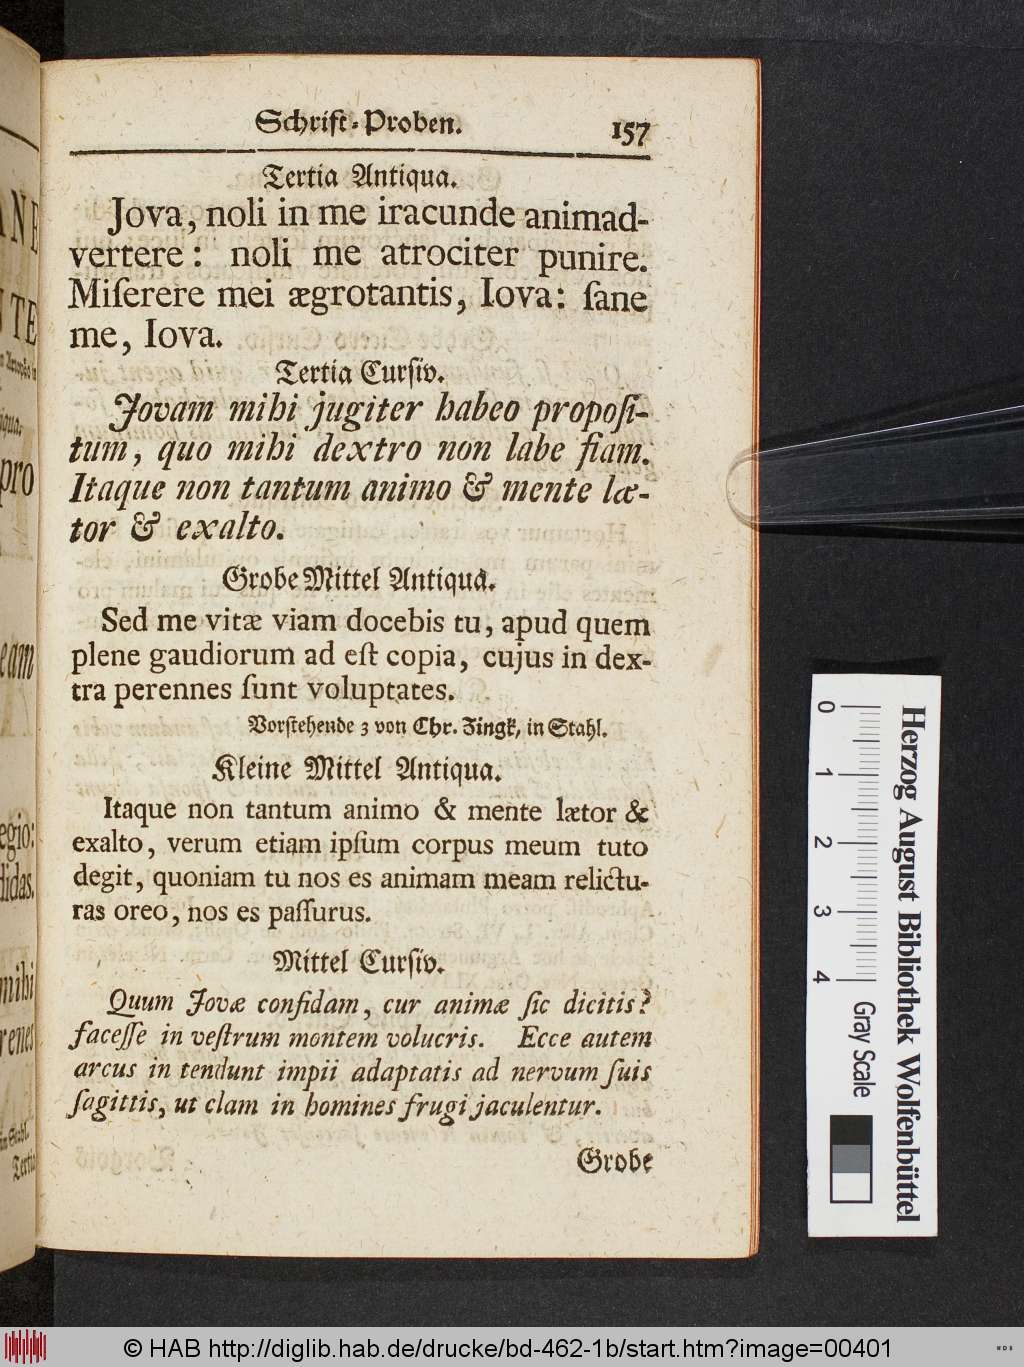 Schrift-Proben. 157
Tertia Antiqua.
Jova, noli in me iracunde animad-
vertere: noli me atrociter punire.
Miſerere mei ægrotantis, Iova: ſane
me, Iova.
Tertia Curſiv.
Jovam mihi jugiter habeo propoſi-
tum, quo mihi dextro non labe fiam.
Itaque non tantum animo & mente læ-
tor & exalto.
Grobe Mittel Antiqua.
Sed me vitæ viam docebis tu, apud quem
plene gaudiorum ad eſt copia, cujus in dex-
tra perennes ſunt voluptates.
Vorſtehende 3 von Chr. Zingk, in Stahl.
Kleine Mittel Antiqua.
Itaque non tantum animo & mente lætor &
exalto, verum etiam ipſum corpus meum tuto
degit, quoniam tu nos es animam meam relictu-
ras oreo, nos es paſſurus.
Mittel Curſiv.
Quum Jovæ confidam, cur animæ ſic dicitis?
faceſſe in veſtrum montem volucris. Ecce autem
arcus in tendunt impii adaptatis ad nervum ſuis
ſagittis, ut clam in homines frugi jaculentur.
Grobe
ANE
TE
pro
eam
egio:
didas.
mihi
renes
in Stahl.
Tertia
0 1 2 3 4
Gray Scale
Herzog August Bibliothek Wolfenbüttel
© HAB http://diglib.hab.de/drucke/bd-462-1b/start.htm?image=00401